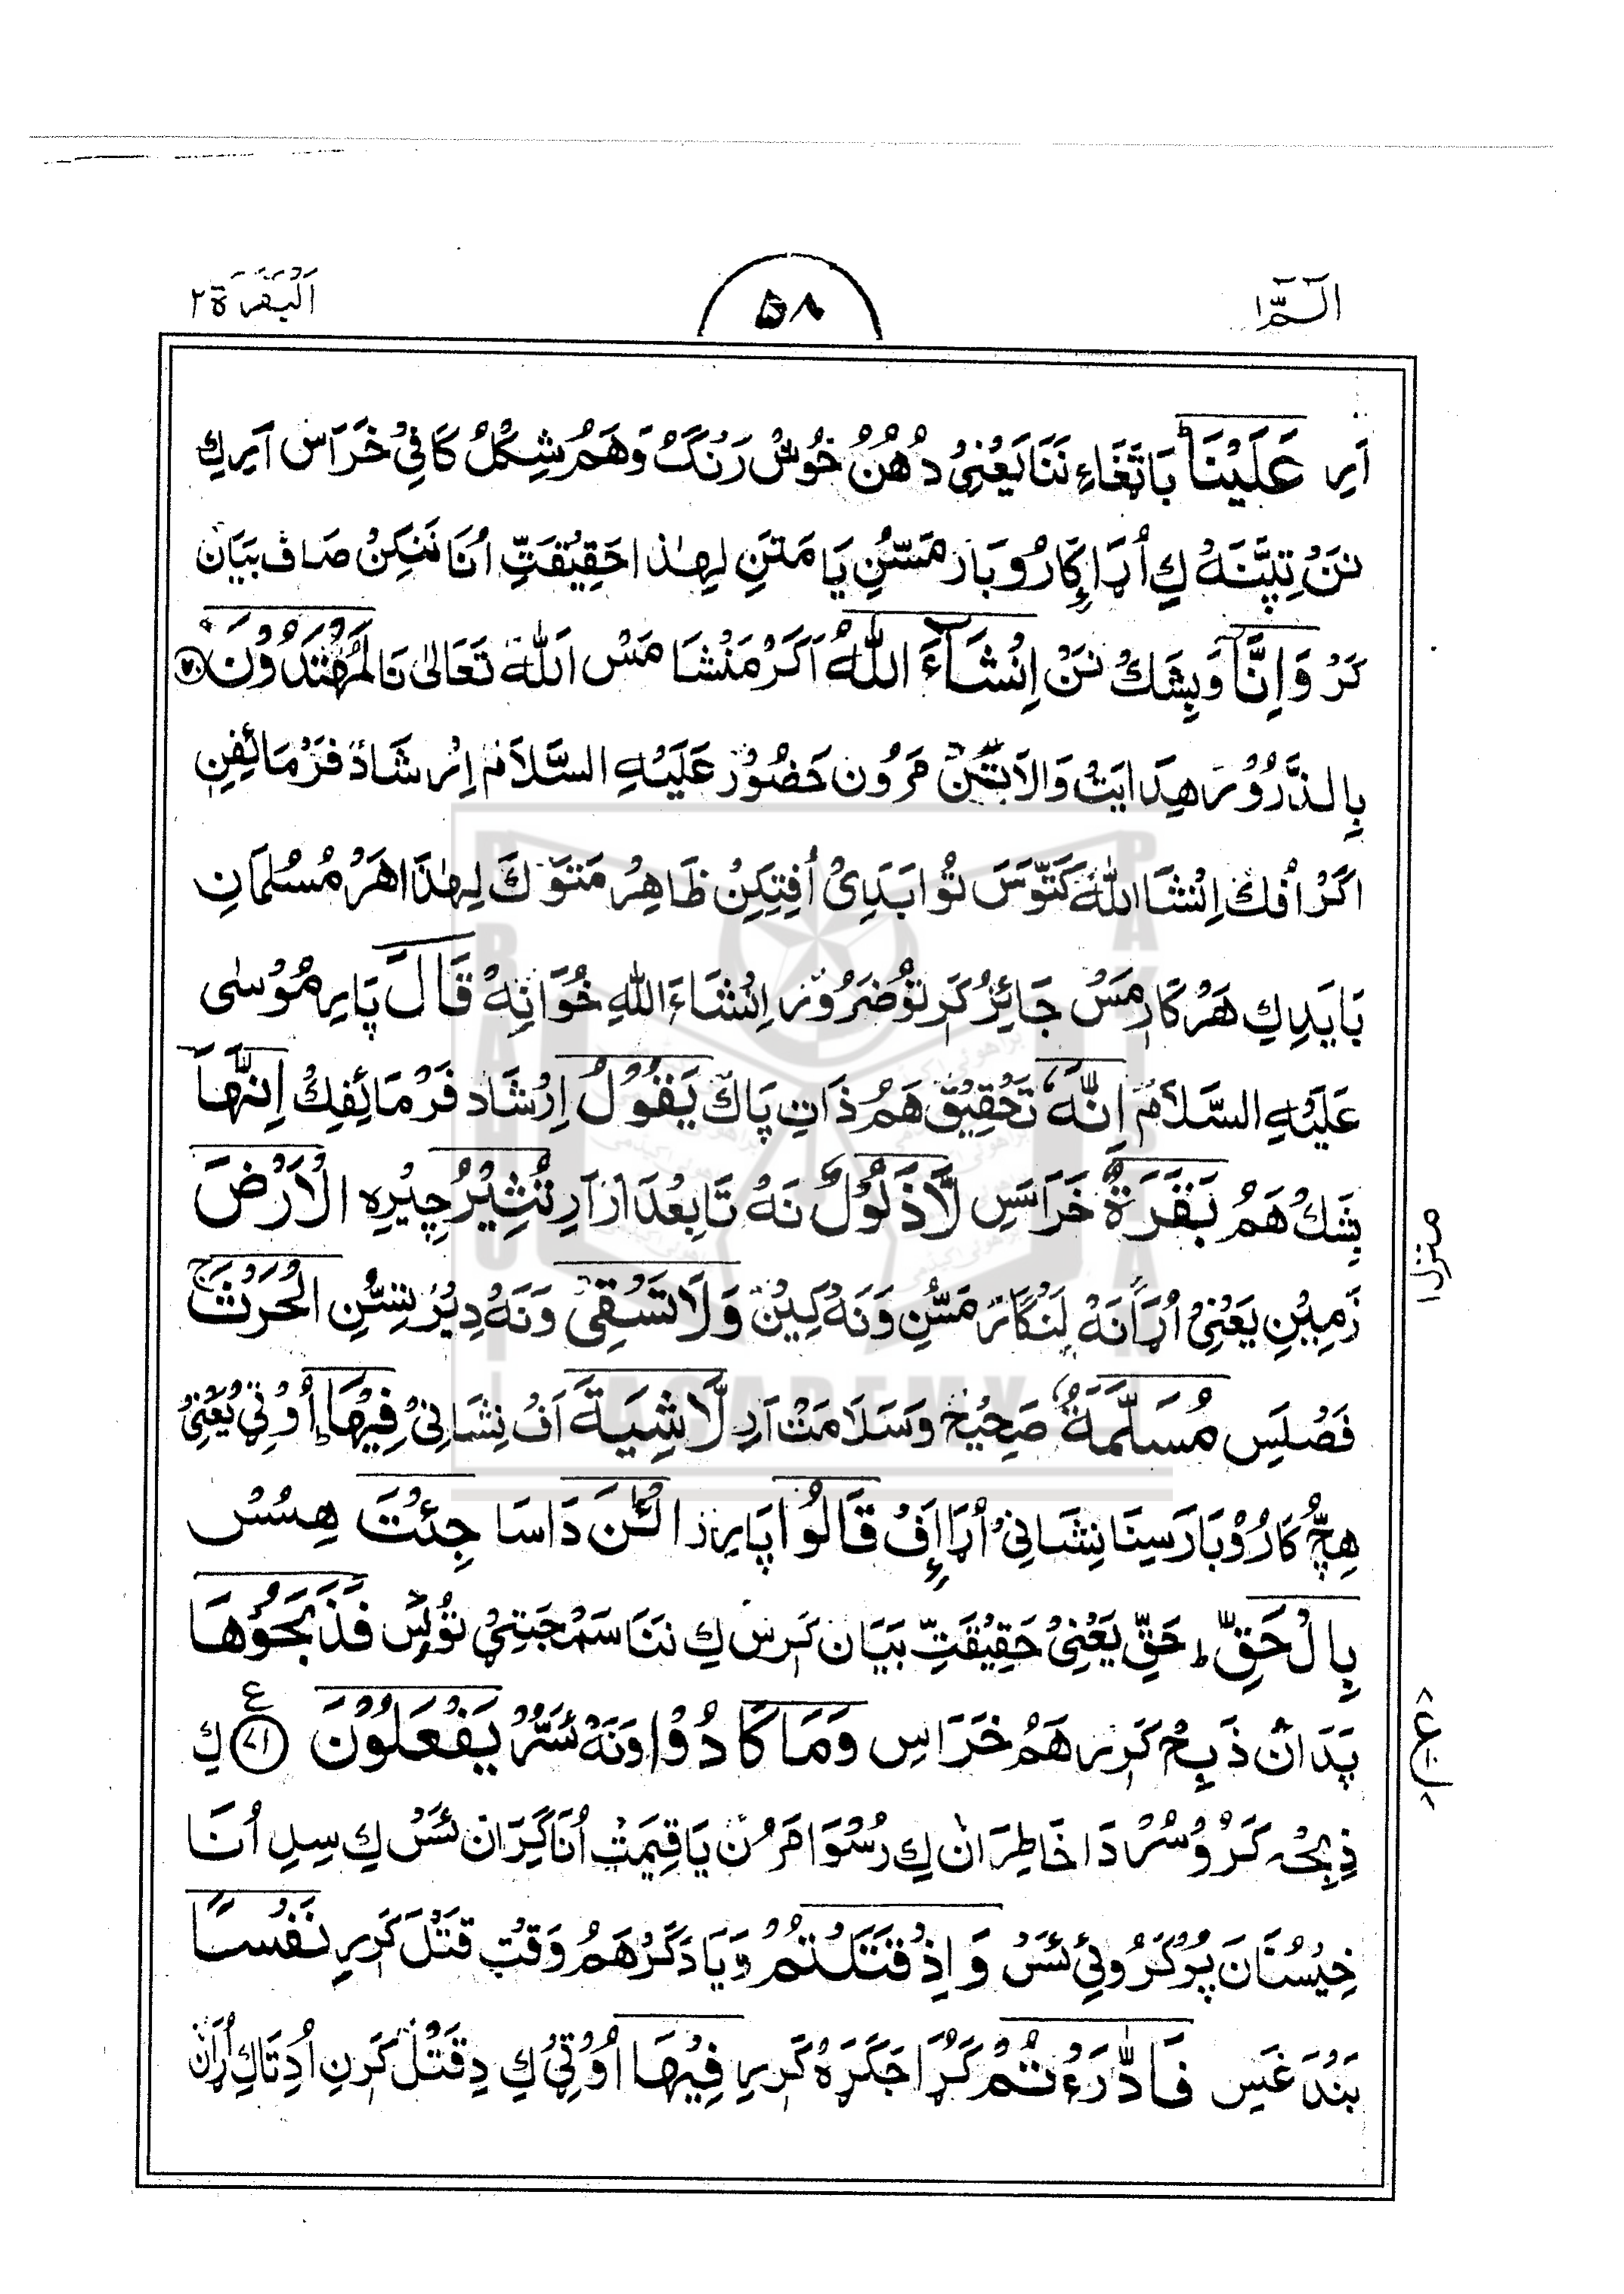 الٓـمّٓ ١
٥٨
اَلْبَقَرَة ٢
اَرِ عَلَيْنَا بَاتْغَاءِ نَنَا يَعْنِیْ دُهُنْ خُوشْ رَنْگْ وَهَمْ شِكْلْ كَافِیْ خَرَاسْ اَرِكِ
نَنْ تِپَّنَهْ كِ اُڑَا كَارُوبَارْ مَسُّنِ يَا مَتَنِ لِهٰذا حَقِيْقَتِّ اُنَا نَنِكِنْ صَاف بَيَانْ
كَرْ وَاِنَّآ وَبِشَكْ نَنْ اِنْشَآءَ اللّٰهُ اَكَرْ مَنْشَا مَسْ اَللّٰه تَعَالٰی نَا لَمُهْتَدُوْنَ ٧٠
بِالذَّرُوْر هِدَايَتْ وَالَا بَنِّنْ مَرُون حَضُوْر عَلَيْهِ السَّلَامْ اِرْشَادْ فَرْمَائِفِنِ
اَكَرْ اُفْكْ اِنْشَا اللّٰهْ كَتَّوَسَ تُو اَبَدِیْ اُفِتِكِنْ ظَاهِرْ مَتَوَكَ لِهٰذَا هَرْ مُسُلمَانِ
بَايَدِكِ هَرْ كَارِمَسْ جَائِزْ كَرِ تو ضَرُوْر اِنْشَاءَ اللهِ خُوَانِهْ قَالَ پَارِ مُوْسٰی
عَلَيْهِ السَّلَامْ اِنَّهٗ تَحْقِيْقْ هَمْ ذَاتِ پَاكْ يَقُوْلُ اِرْشَاد فَرْمَائِفِكْ اِنَّهَا
بِشَكْ هَمْ بَقَرَةٌ خَرَاسَسِ لَّا ذَلُوْلٌ نَهْ تَابِعْدَار اَرِ تُثِيْرُ چِيْرِه الْاَرْضَ
زَمِيْنِ يَعْنِیْ اُڑَانَهْ لَنْگَار مَسُّنِ وَنَهْ كِيْنْ وَلَا تَسْقِی وَنَهْ دِيْر شِسُّنِ الْحَرْثَ
فَصْلَسِ مُسَلَّمَةٌ صَحِيْح وَسَلَامَتْ اَرِ لَّا شِيَةَ اَفْ نِشَانِیْ فِيْهَا اُوْ ٹِیْ يَعْنِیْ
هِچّ كَارُوْبَارَسِنَا نِشَانِیْ اُڑَا اِفْ قَالُوا پَارِر الْـٰٔنَ دَاسَا جِئْتَ هِسُسْ
بِالْحَقِّ حَقِّ يَعْنِیْ حَقِيْقَتِّ بَيَان كَرِسْ كِ نَنَا سَمْجَتِیْ تُوِسْ فَذَبَحُوْهَا
پَدَانْ ذَبِحْ كَرِر هَمْ خَرَاسِ وَمَا كَادُوْا وَنَهْ سُرّْ يَفْعَلُوْنَ ٧١ كِ
ذِبِحْه كَرُوْ سُرْ دَا خَاطِرَانْ كِ رُسْوَا مَرُنْ يَا قِيمَتْ اُنَا گِرَان سَسْ كِ سِلِ اُنَا
خِيْسُنَانَ پُر كَرُوئِی سَسْ وَاِذْ قَتَلْتُمْ وَيَاد كَرْ هَمْ وَقْتِ قَتْل كَرِرِ نَفْسًا
بَنْدَغَسِ فَادّٰرَءْتُمْ كَرْ اجَكَرَهْ كَرِرِ فِيْهَا اُوْ ٹِیْ كِ دِ قَتْل كَرِنِ اُدِتَاكِ اُڑَان
منزل ١
ع ٨